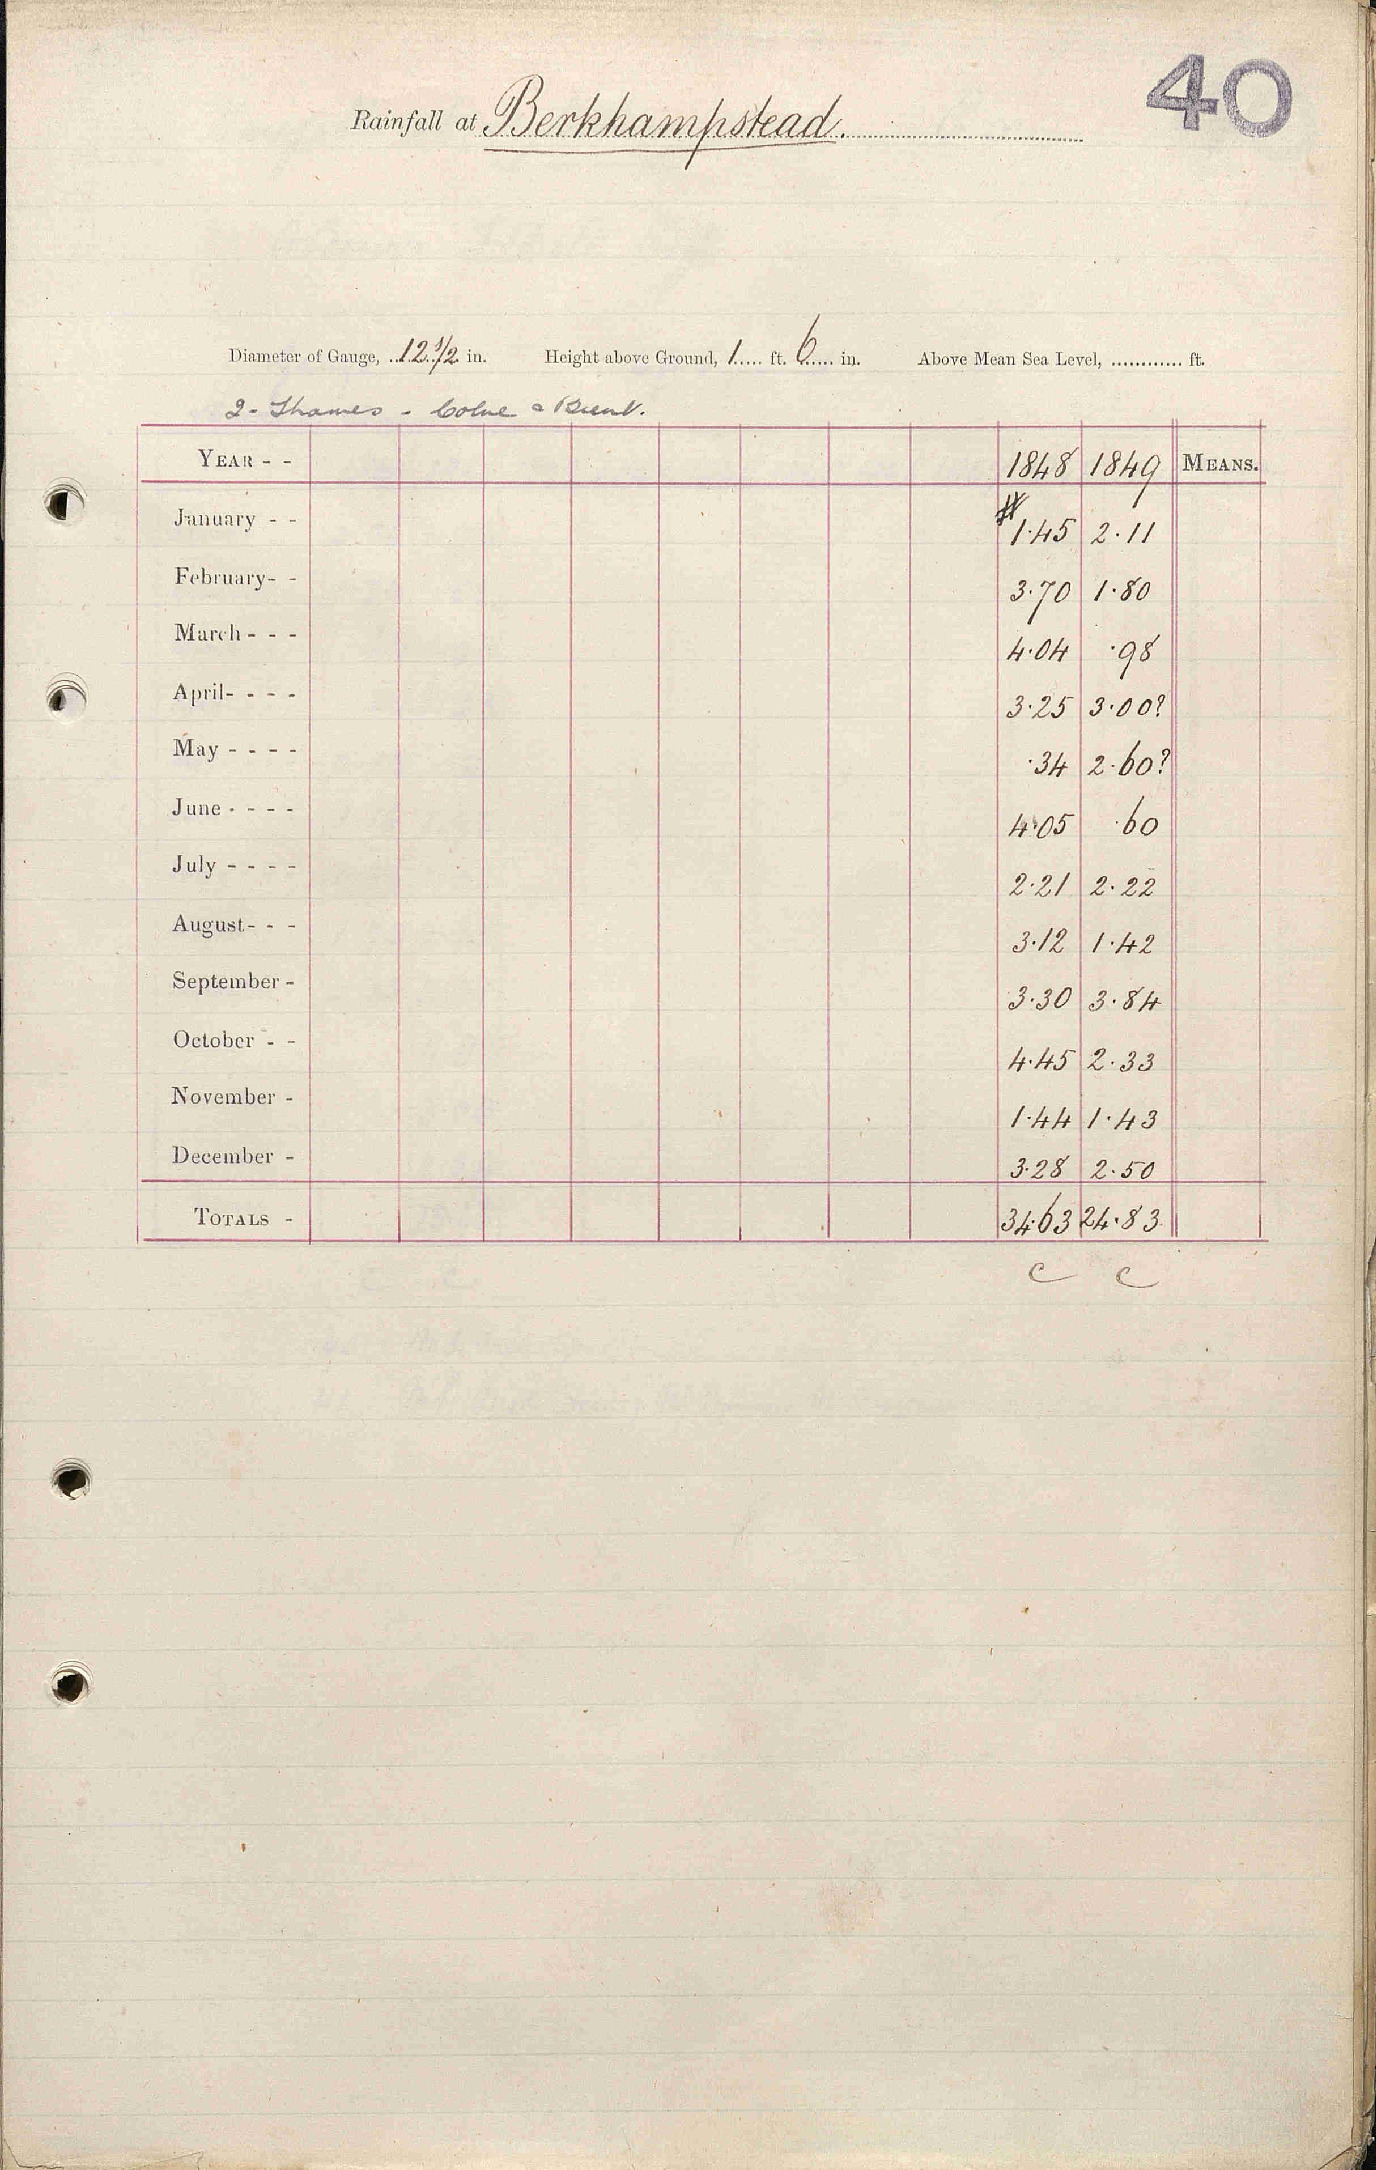 40
Rainfall at Berkhampstead.
Diameter of Gauge, 12 1/2 in. Height above Ground, 1 ft. 6 in. Above Mean Sea Level, ............ ft.
2 - Thames - Colne & Brent.
YEAR - - 1848 1849 MEANS.
January - - # 1.45 2.11
February - - 3.70 1.80
March - - - 4.04 .98
April - - - - 3.25 3.00?
May - - - - .34 2.60?
June - - - - 4.05 .60
July - - - - 2.21 2.22
August - - - 3.12 1.42
September - 3.30 3.84
October - - 4.45 2.33
November - 1.44 1.43
December - 3.28 2.50
TOTALS - 34.63 24.83
c c